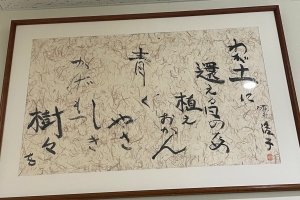 わが土に
還る日の為
植えおかん
青くやさ
しき
かげもつ
樹々を